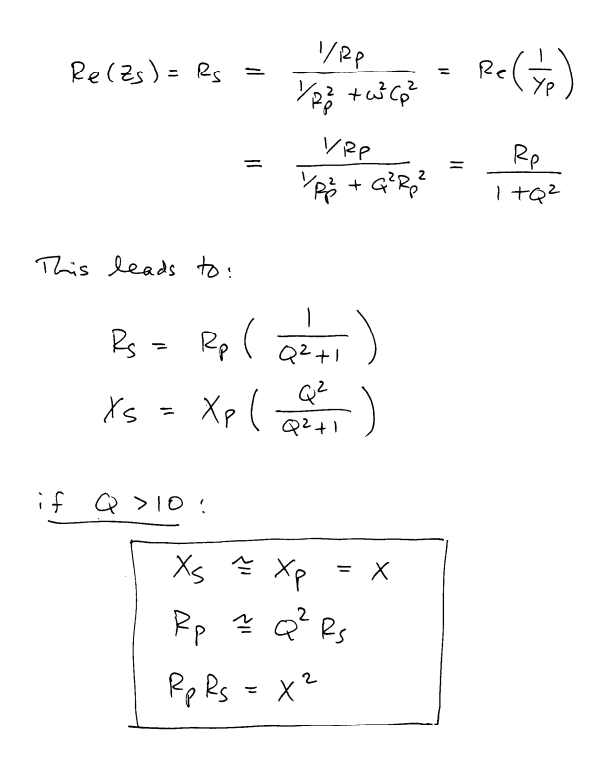 Re(Zs) = Rs = (1/Rp) / (1/Rp² + ω²Cp²) = Re(1/Yp)
= (1/Rp) / (1/Rp² + Q²Rp²) = Rp / (1+Q²)
This leads to:
Rs = Rp ( 1 / (Q²+1) )
Xs = Xp ( Q² / (Q²+1) )
if Q >10 :
Xs ≅ Xp = X
Rp ≅ Q² Rs
Rp Rs = X²